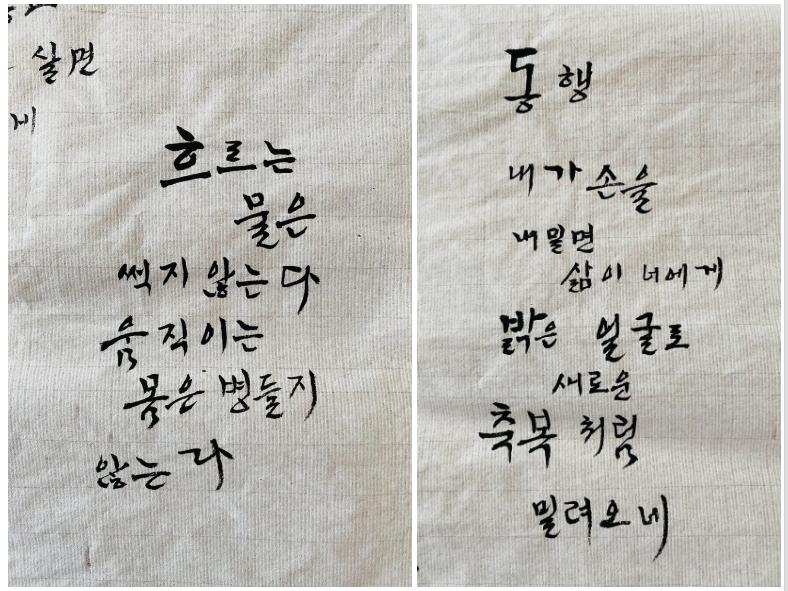 살면
게
흐르는
물은
썩지 않는다
움직이는
몸은 병들지
않는다
동행
내가 손을
내밀면
삶이 너에게
밝은 얼굴로
새로운
축복처럼
밀려오네